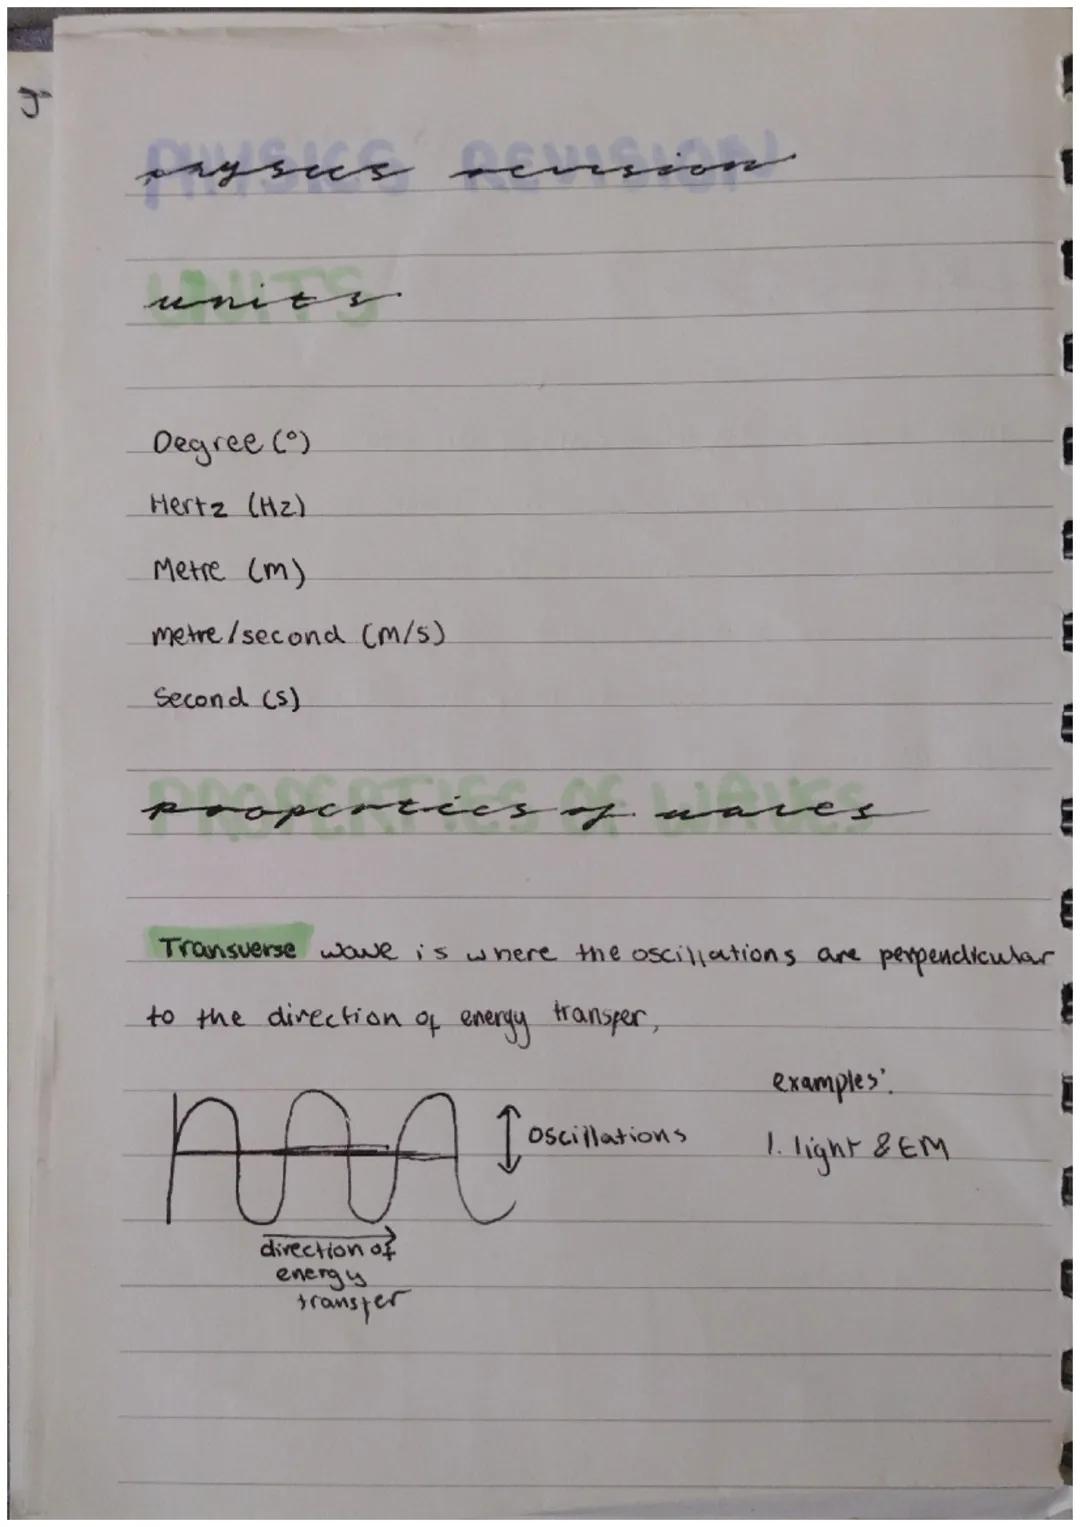 physics revision
units
Degree (°)
Hertz (Hz)
Metre (m)
metre/second (m/s)
Second (s)
properties of waves
Transverse wave is where the oscillations are perpendicular
to the direction of energy transfer,
examples:
oscillations
1. light & EM
direction of
energy
transfer